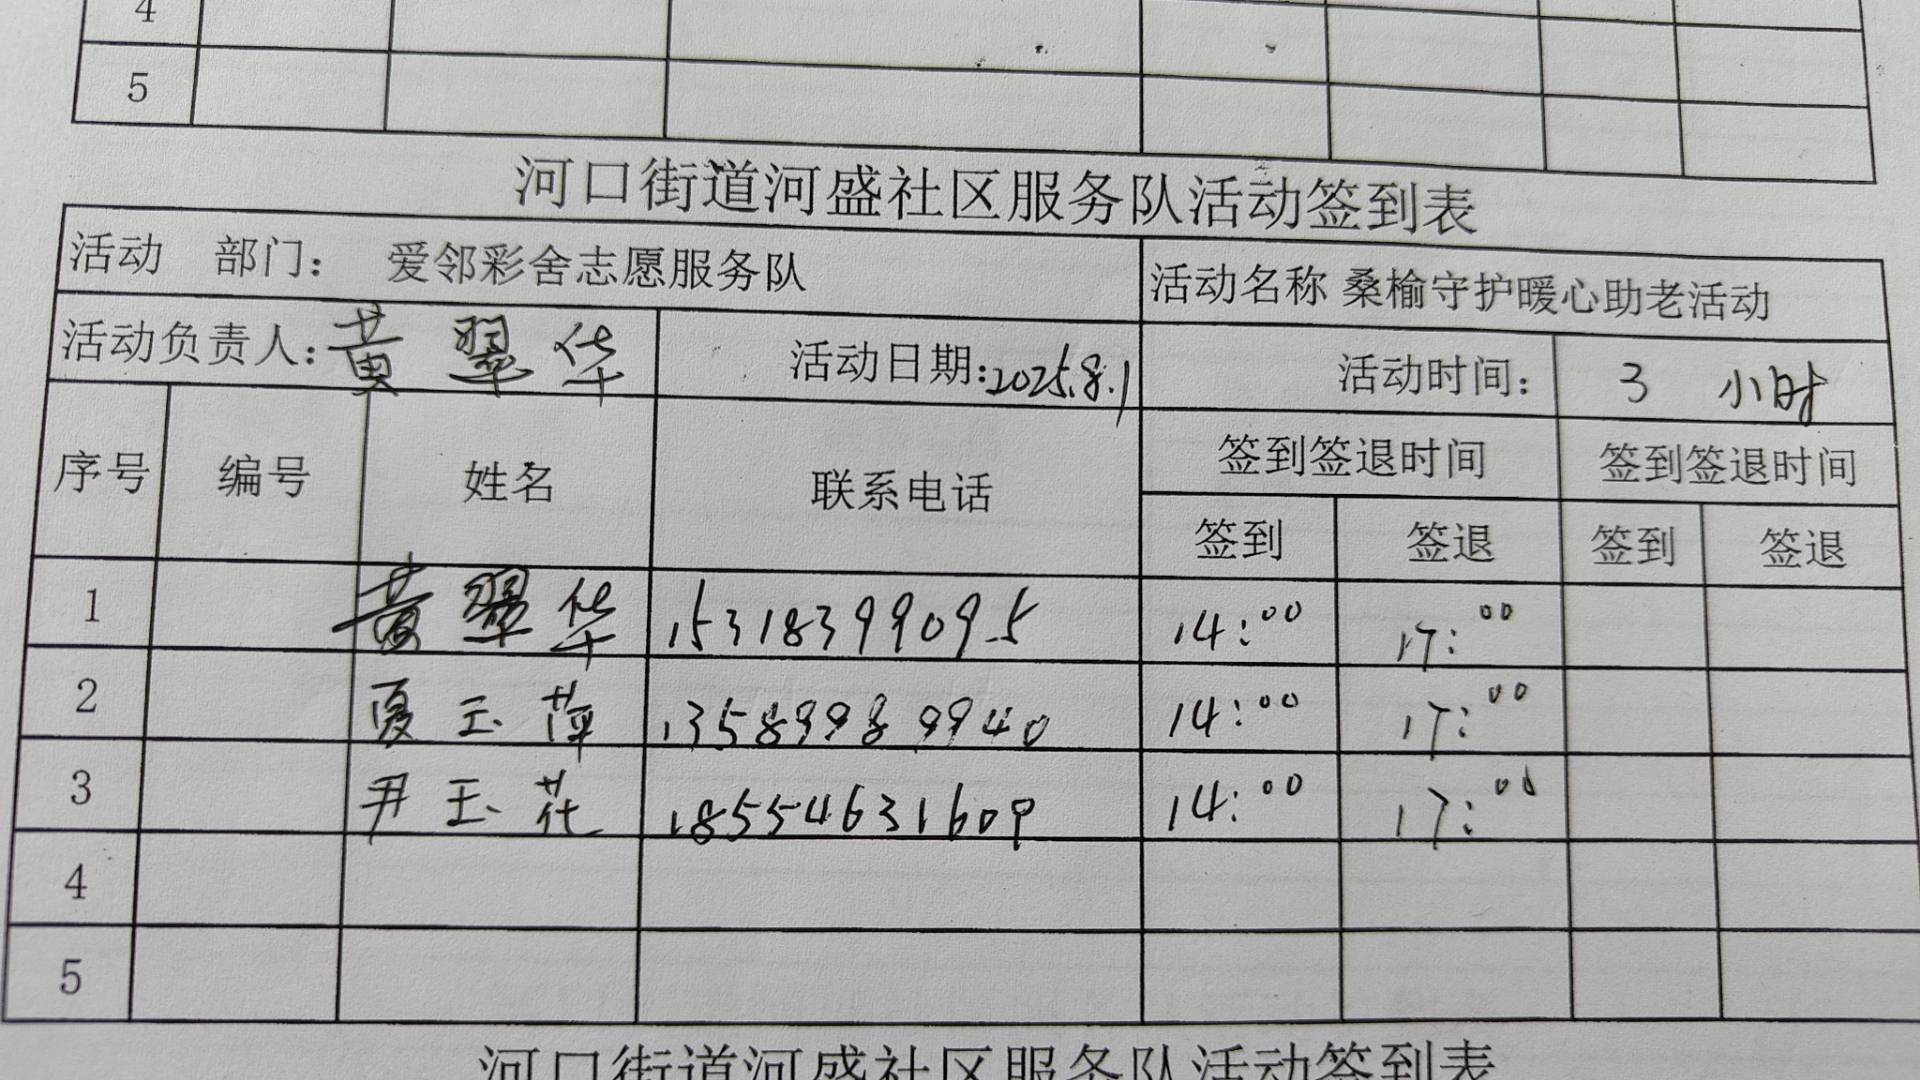 4
5
河口街道河盛社区服务队活动签到表
活动 部门： 爱邻彩舍志愿服务队 活动名称 桑榆守护暖心助老活动
活动负责人：黄翠华 活动日期：2025.8.1 活动时间： 3 小时
序号 编号 姓名 联系电话 签到签退时间 签到签退时间
签到 签退 签到 签退
1 黄翠华 15318399095 14:00 17:00
2 夏玉萍 13589989940 14:00 17:00
3 尹玉花 18554631609 14:00 17:00
4
5
河口街道河盛社区服务队活动签到表